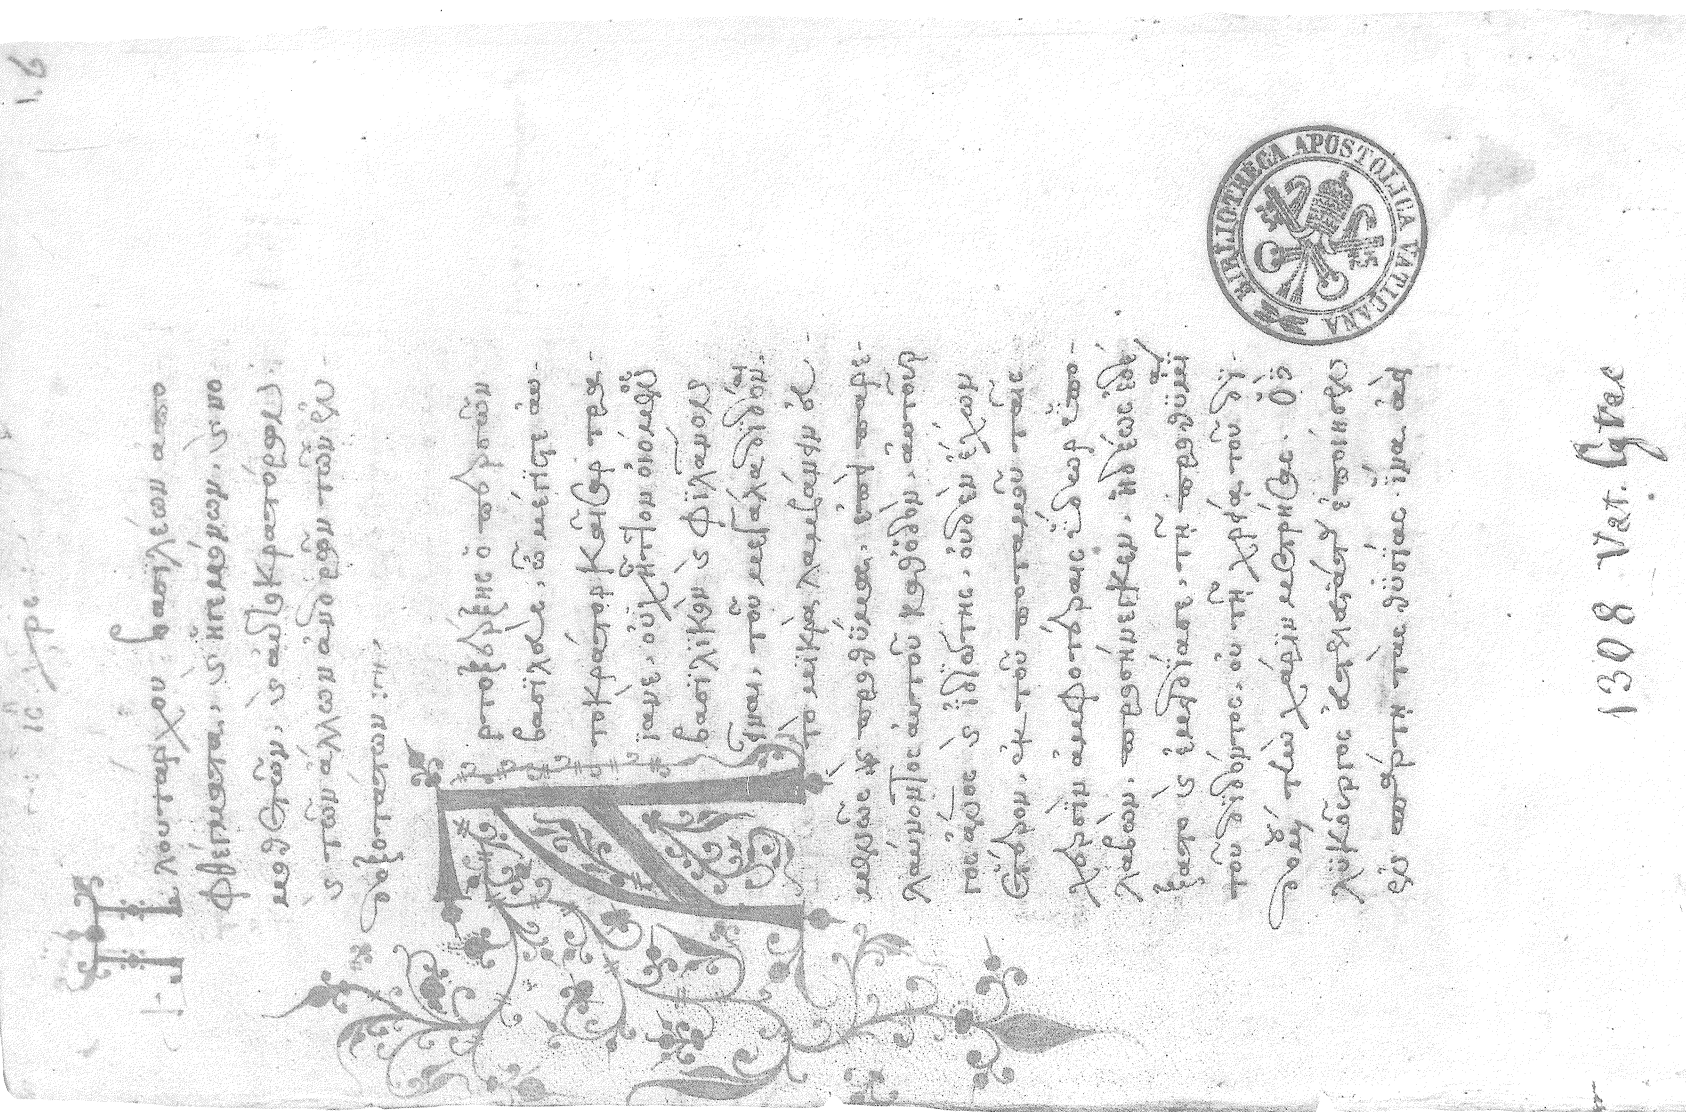 Πλουτάρχου βασιλέων ἀπο
φθέγματα, καὶ ἡγεμόνων, καὶ νο
μοθετῶν, καὶ αὐτοκρατόρων.
καὶ τῶν ἄλλων ἀνδρῶν τῶν ἐν
δοξοτάτων :
Ἀρτοξέρξης ὁ περσῶν
βασιλεύς, ὦ μέγιστε αὐ
τοκράτορ καῖσαρ τρα
ϊανέ, οὐχ ἧττον οἰόμενος
βασιλικὸν καὶ
τοῦ μεγάλα διδόναι
τὸ μικρὰ λαμβάνειν εὐ
μενῶς καὶ προθύμως. ἐπεὶ παρε
λαύνοντος αὐτοῦ καθ' ὁδὸν, αὐτουρ
γὸς ἄνθρωπος καὶ ἰδιώτης, οὐδὲν ἔχων
ἕτερον, ἐκ τοῦ ποταμοῦ ταῖς
χερσὶν ἀμφοτέραις ὕδωρ ὑπο
λαβὼν, προσήνεγκεν, ἡδέως ἐδέ
ξατο καὶ ἐμειδίασε, τῇ προθυμίᾳ
τοῦ διδόντος, οὐ τῇ χρείᾳ τοῦ δι
δομένου τὴν χάριν μετρήσας. ὁ δὲ
λυκοῦργος ἐποίησεν
ἐν σπάρτη τὰς θυσίας. ἵνα ἀεὶ
BIBLIOTHECA APOSTOLICA VATICANA
1308 Vat. Grae